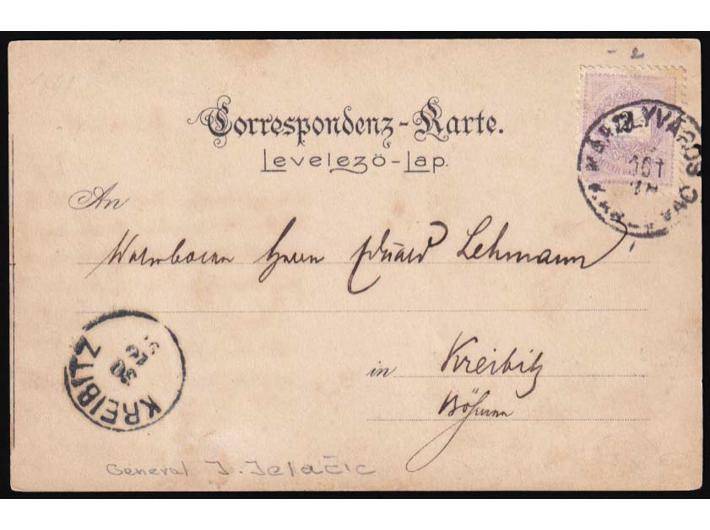 Correspondenz-Karte.
Levelező-Lap
An
Herrn Eduard Lehmann
in Kreibitz
Böhmen
KREIBITZ
30
General J. Jelačic